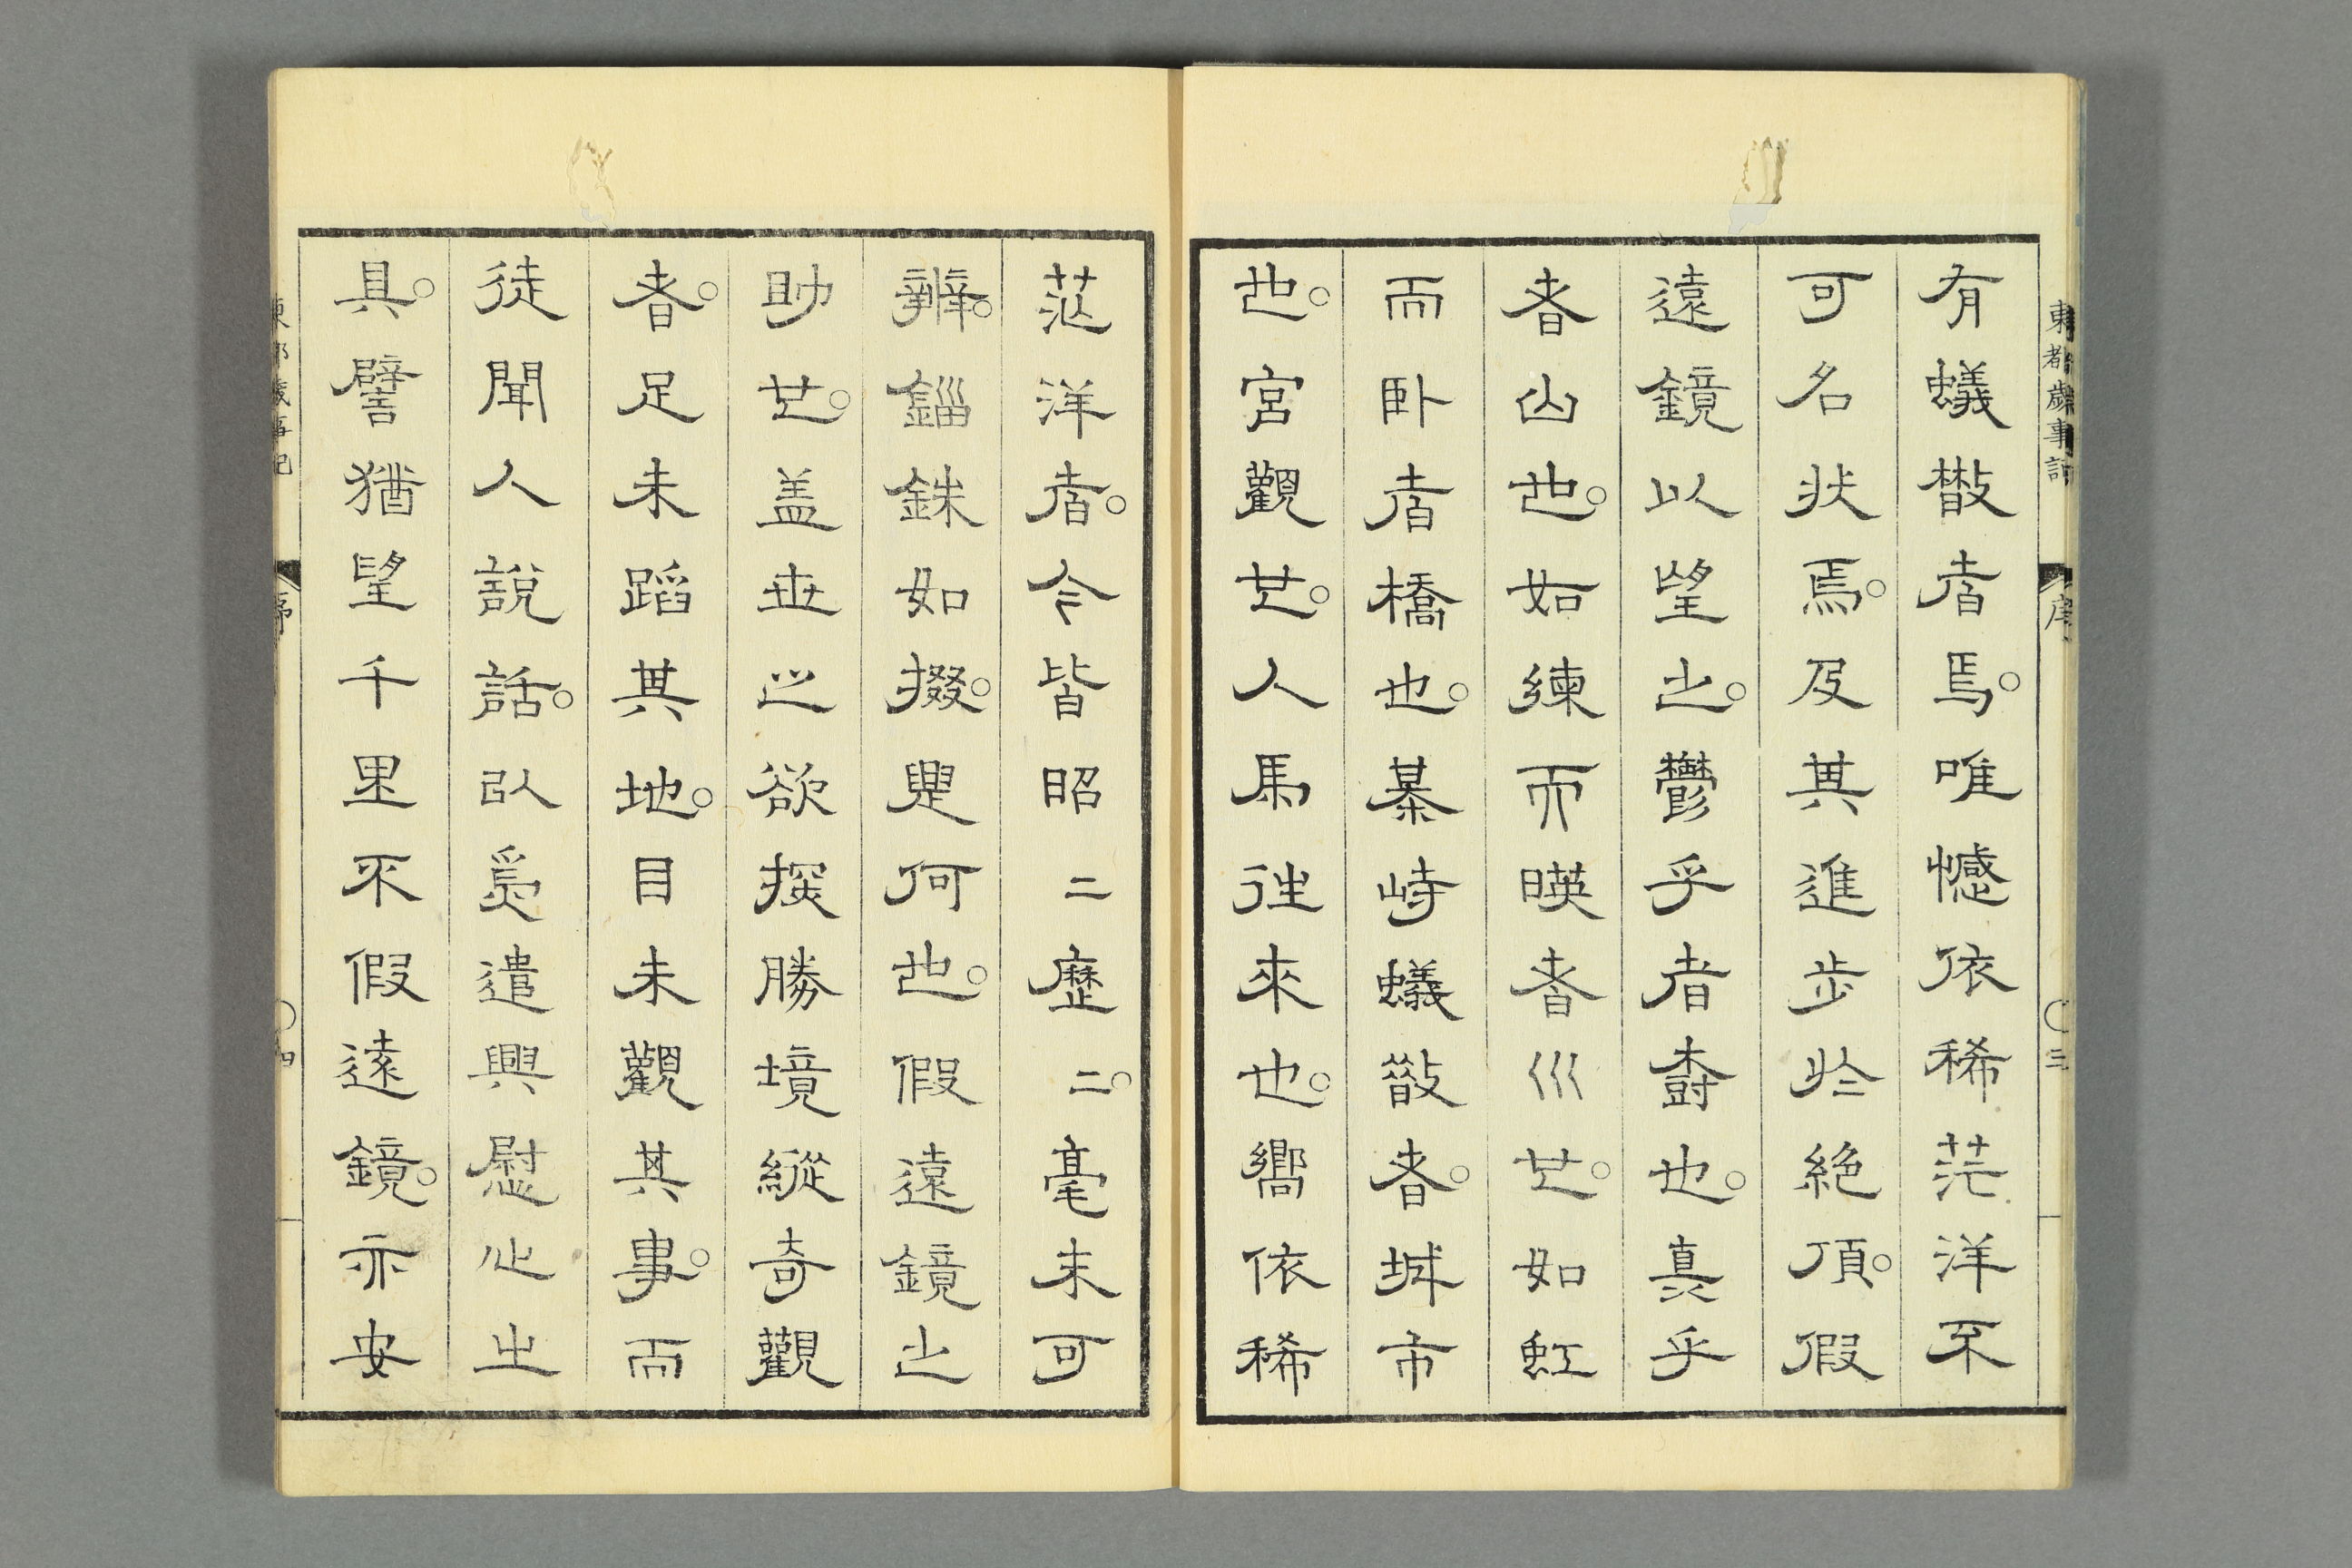 東都歲事記 序 三
有蟻散者焉。唯憾依稀茫洋不
可名狀焉。及其進步於絕頂。假
遠鏡以望之。鬱乎者樹也。真乎
者山也。如練而暎者巛也。如虹
而臥者橋也。棊峙蟻散者。城市
也。宮觀也。人馬往來也。嚮依稀
茫洋者。今皆昭二歷二。毫末可
辨。錙銖如掇。是何也。假遠鏡之
助也。盖世之欲探勝境縱奇觀
者。足未蹈其地。目未觀其事。而
徒聞人說話。以爲遣興慰心之
具。譬猶望千里不假遠鏡。亦安
東都歲事記 序 四